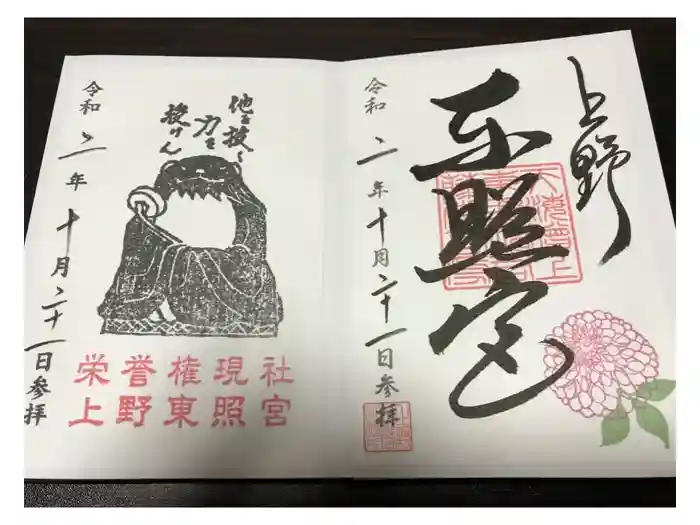 上野
東照宮
令和二年十月二十一日参拝
他を抜く
力を
授けん
令和二年十月二十一日参拝
栄誉権現社
上野東照宮